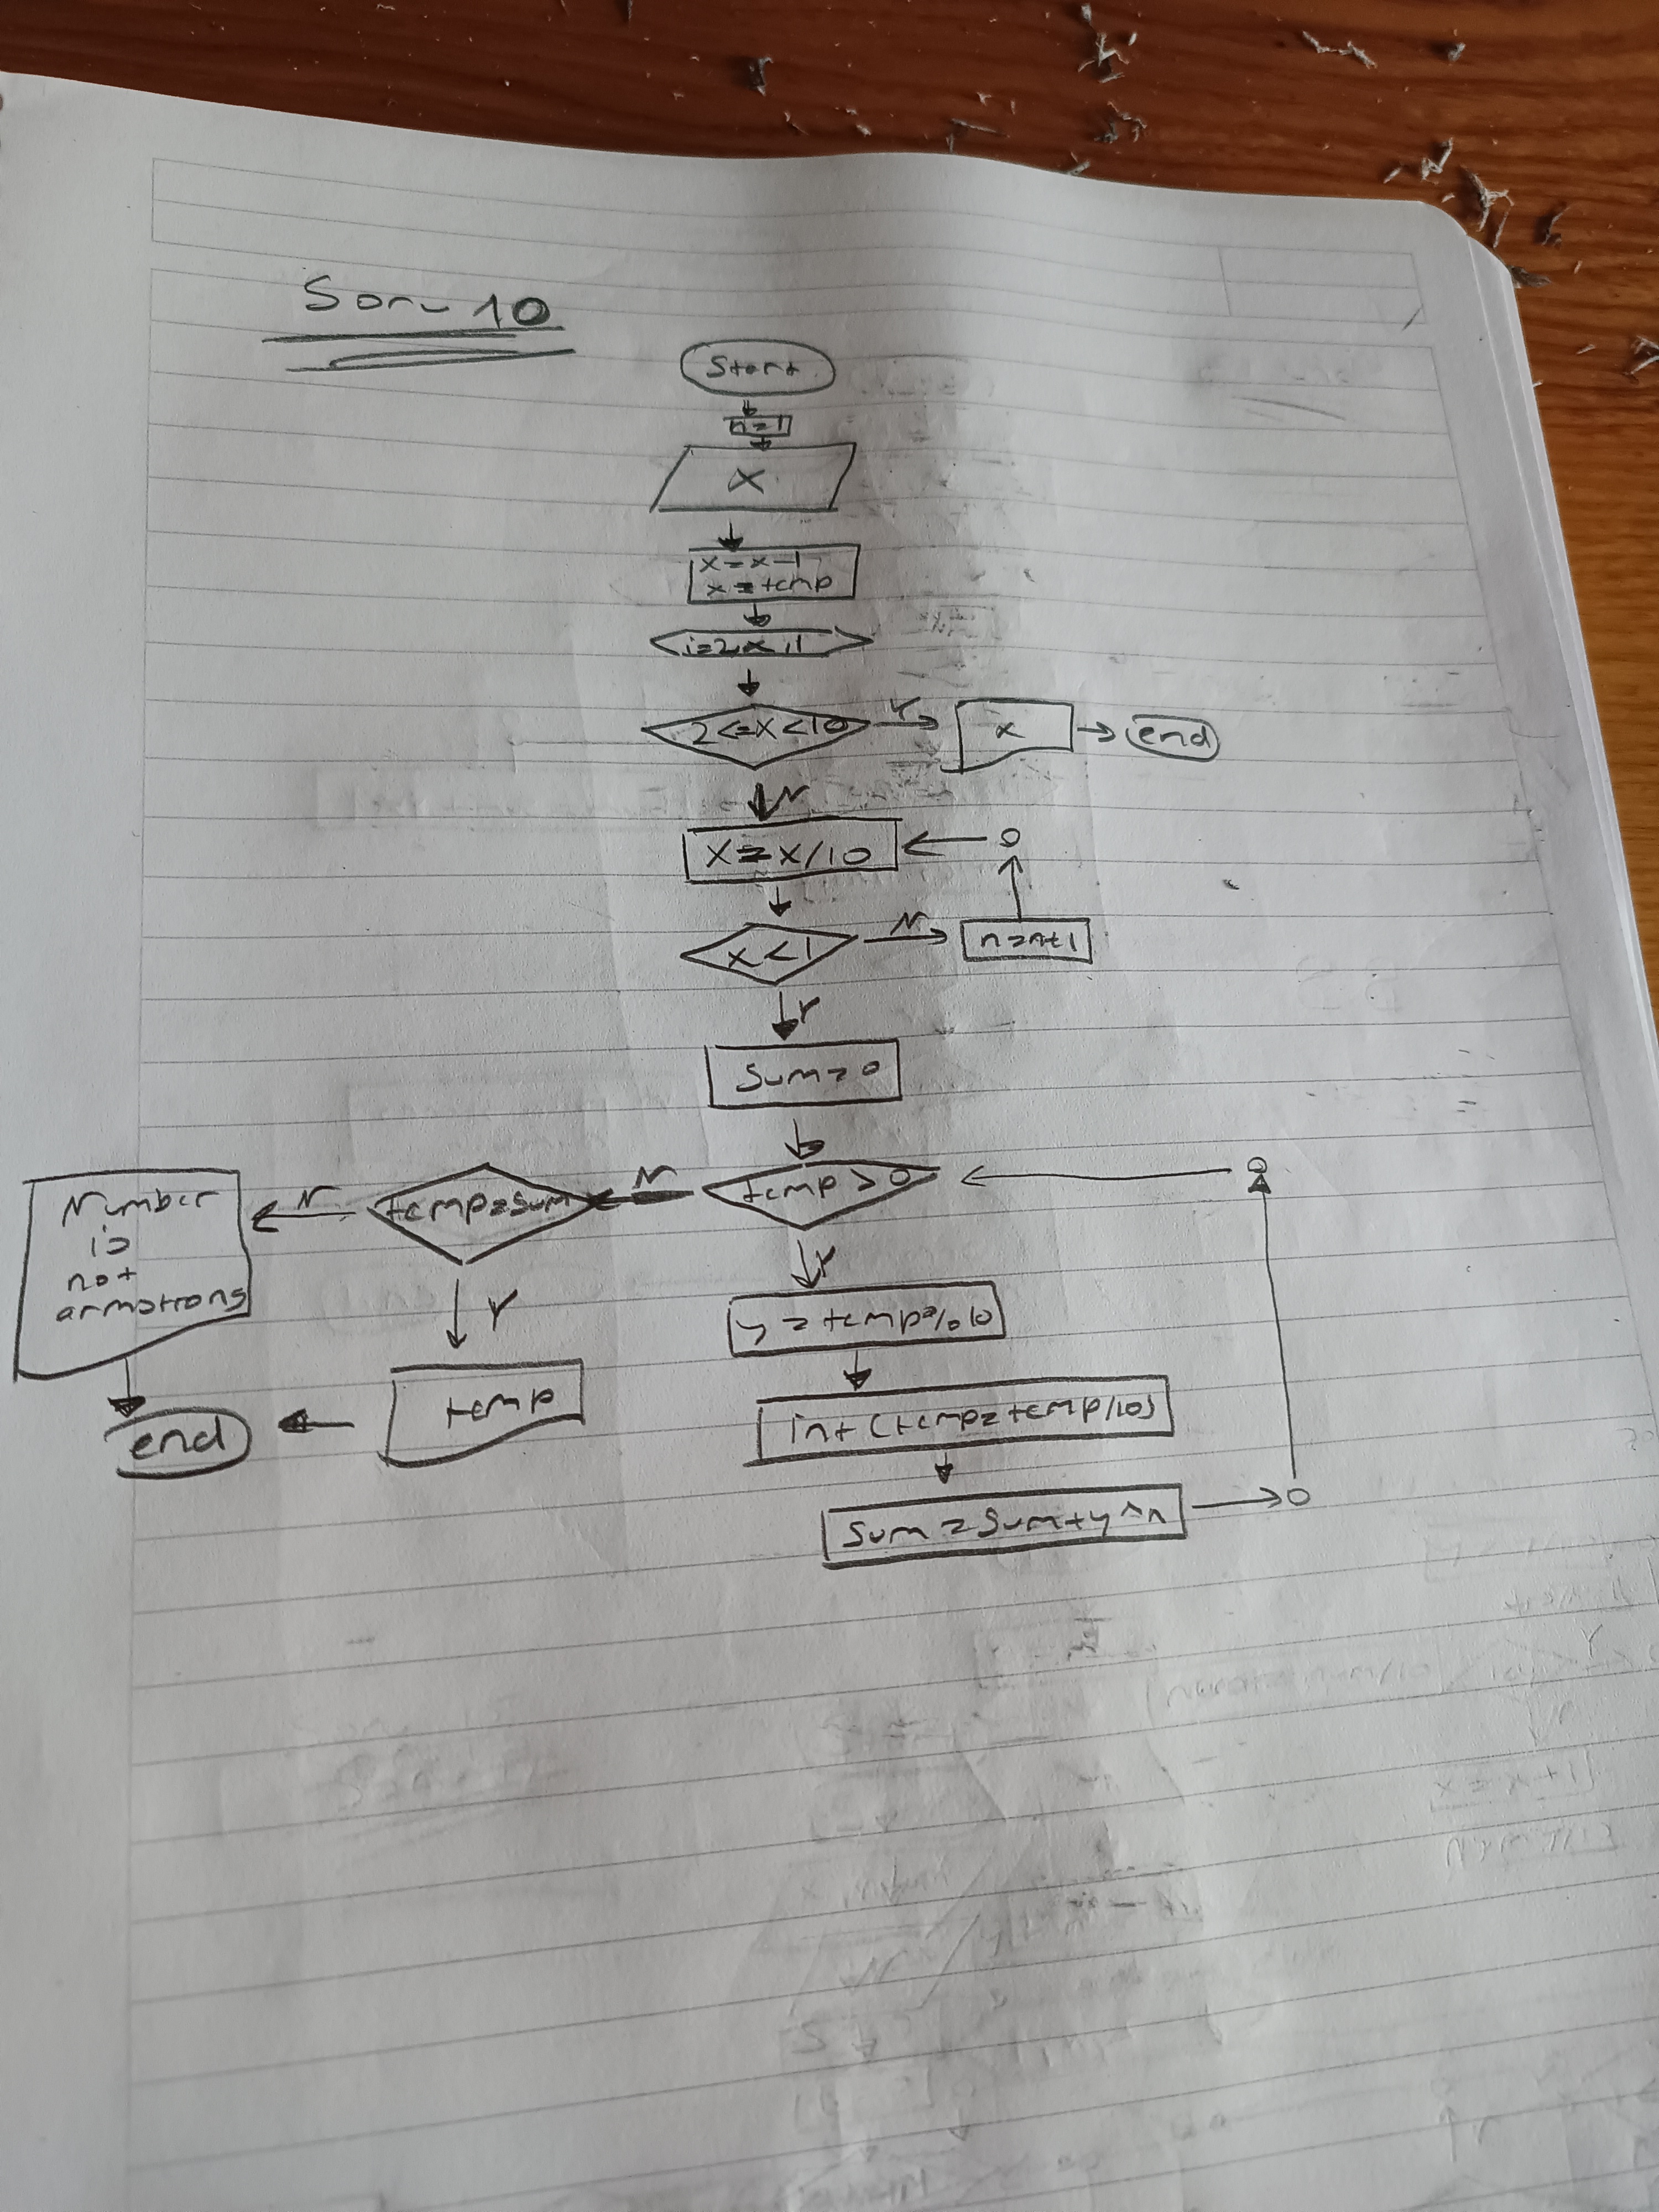 Soru 10
Start
n=1
x
x=x-1
x=temp
i=2,x,1
2<=x<10
Y
x
end
N
x=x/10
x<1
N
n=n+1
Y
Sum=0
temp>0
N
temp=sum
N
Number
is
not
armstrong
Y
Y
y=temp%10
temp
end
int(temp=temp/10)
sum=sum+y^n